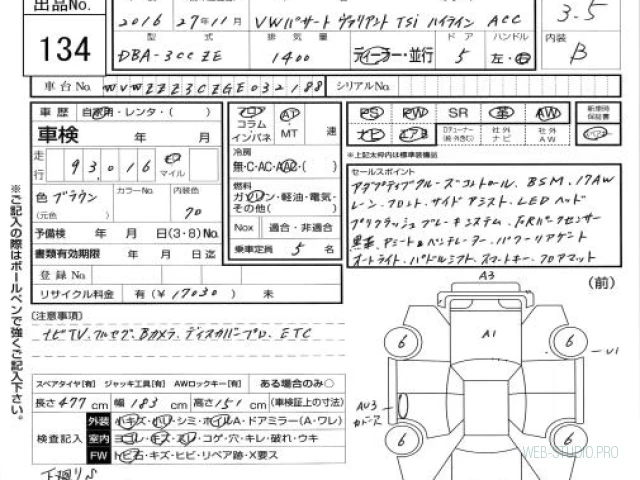 出品No.
134
2016 27年11月 VWパサート ヴァリアント TSi ハイライン ACC
3.5
DBA-3CCZE
排気量
1400
ディーラー・並行
ドア
5
ハンドル
左・右
内装
B
車台No.
WVWZZZ3CZGE032188
シリアルNo.
車歴 自家用・レンタ・( )
車検 年 月
走行 93,016 マイル
色 ブラウン
(元色 )
カラーNo.
内装色
70
予備検 年 月 日(3・8)No.
書類有効期限 年 月 日迄
登録No.
リサイクル料金 有(¥17030) 未
フロア
コラム
インパネ
AT
MT
速
冷房
無・C・AC・AAC・( )
燃料
ガソリン・軽油・電気・
その他( )
Nox 適合・非適合
乗車定員 5 名
PS PW SR 革 AW
ナビ エアB
社外ナビ
社外AW
新車時保証書
※上記太枠内は標準装備品
セールスポイント
アダプティブクルーズコントロール、BSM、17AW
レーン、フロント、サイドアシスト、LEDヘッド
プリクラッシュブレーキシステム、FoRパークセンサー
黒革、
オートライト、パドルシフト、スマートキー、フロアマット
(注意事項)
ナビTV、フルセグ、Bカメラ、ディスカバープロ、ETC
スペアタイヤ[有] ジャッキ工具[有] AWロックキー[有] ある場合のみ○
長さ477cm 幅183cm 高さ151cm (車検証上の寸法)
検査記入
外装 小キズ・小ヘコ・シミ・ホイルA・ドアミラー(A・ワレ)
室内 ヨゴレ・キズ・スレ・コゲ・穴・キレ・破れ・ウキ
FW トビ石・キズ・ヒビ・リペア跡・X要ス
下廻りS
※ご記入の際はボールペンで強くご記入下さい。
A3
(前)
A1
6
6
U1
AU3
6
6
WEB-STUDIO.PRO